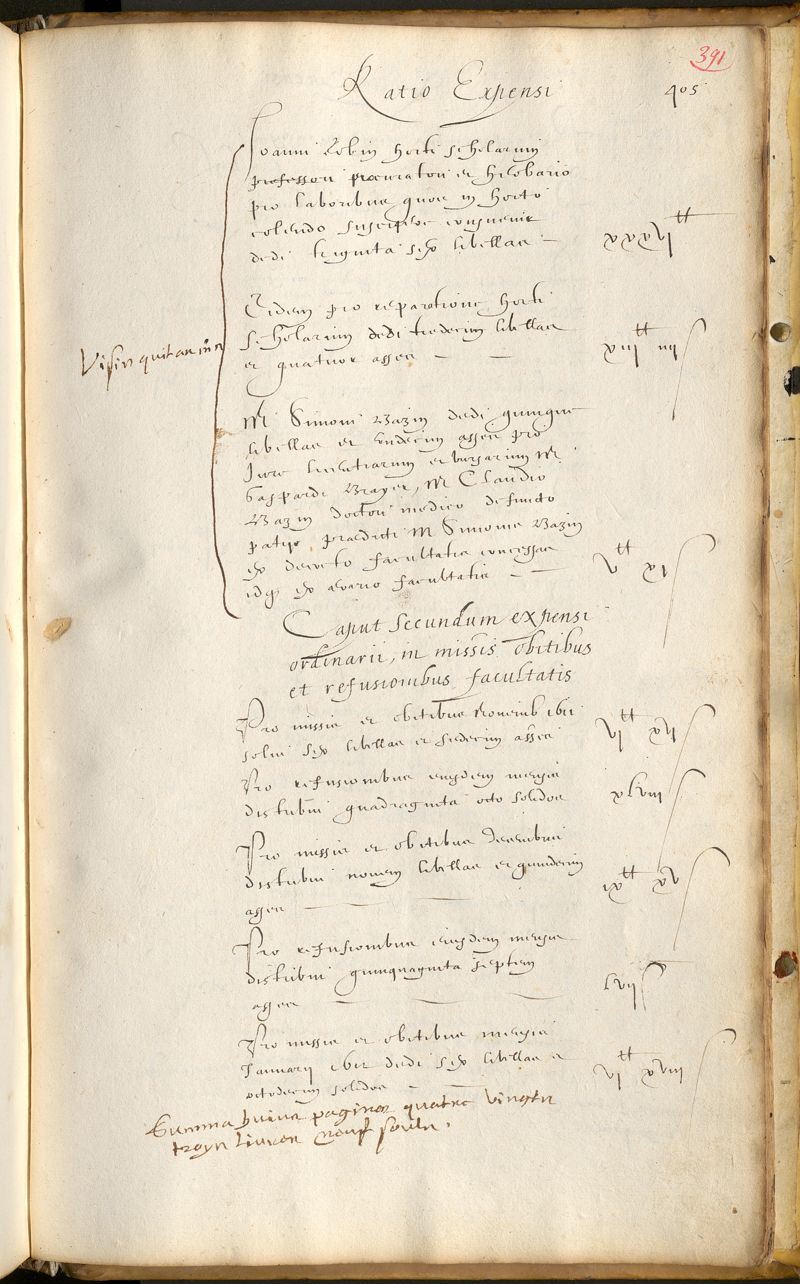 391
Ratio Expensi
405
Joanni Robin horti scholarum
professori procuratori et herbario
pro laboribus quos in horto
colendo suscipere consuevit
dedi triginta sex libellas
xxxvi tt
Eidem pro reparatione horti
scholarum dedi tredecim libellas
et quatuor asses
xiii tt iiii s
Visis quitanciis
M Simoni Bazin dedi quinque
libellas et undecim asses pro
jure licentiarum et bursarum M
Gaspardi Brayer, M Claudio
Bazin doctori medico defuncto
patri praedicti M Simonis Bazin
ex decreto facultatis concessas
idq ex aerario facultatis
v tt xi s
Caput secundum expensi
ordinarii, in missis obitibus
et refusionibus facultatis
Pro missis et obitibus Novemb 1611
solvi sex libellas et sedecim asses
vi tt xvi s
Pro refusionibus eiusdem mensis
distribui quadraginta octo solidos
xlviii s
Pro missis et obitibus Decembris
distribui novem libellas et quindecim
asses
ix tt xv s
Pro refusionibus eiusdem mensis
distribui quinquaginta septem
asses
lvii s
Pro missis et obitibus mensis
Januarii 1612 dedi sex libellas et
octodecim solidos
vi tt xviii s
Summa huius paginae quatre vingtz
troys livres neuf soulz.